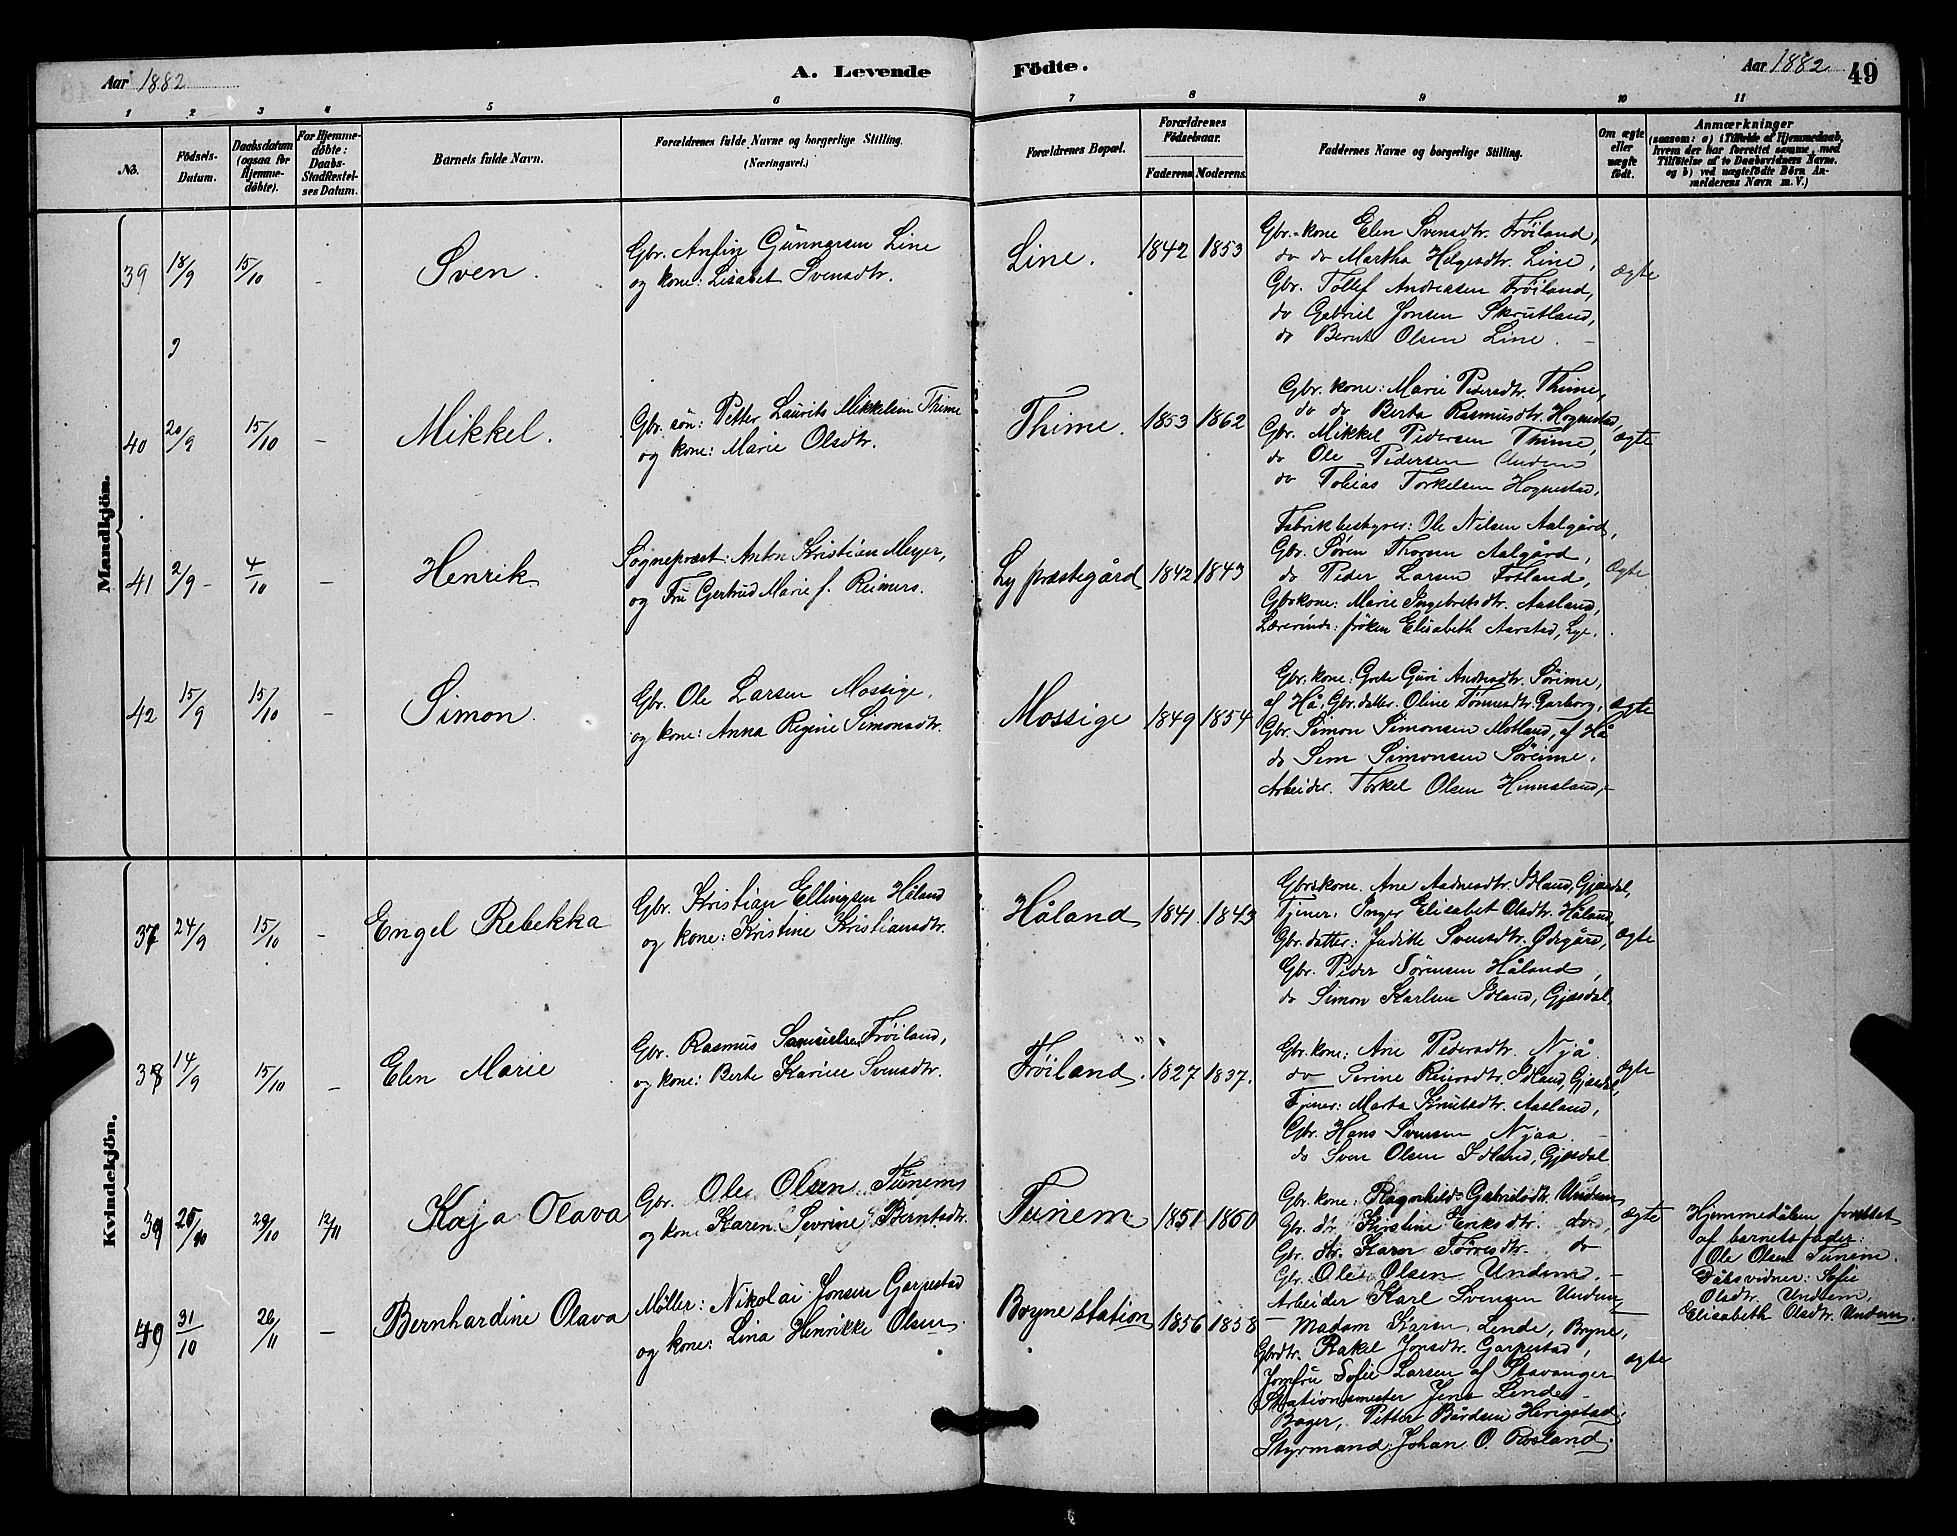 Aar 1882
A. Levende
Födte.
Aar 1882
49
1 2 3 4 5 6 7 8 9 10 11
No.
Födsels-
Datum.
Daabsdatum
(ogsaa for
Hjemme-
döbte).
For Hjemme-
döbte:
Daabs-
Stadfæstel-
ses Datum.
Barnets fulde Navn.
Forældrenes fulde Navne og borgerlige Stilling.
(Næringsvei.)
Forældrenes Bopæl.
Forældrenes
Födselsaar.
Faderens Moderens.
Faddernes Navne og borgerlige Stilling.
Om ægte
eller
uægte
födt.
Anmærkninger
(saasom: a) i Tilfælde af Hjemmedaab,
hvem der har forrettet samme, med
Tilföielse af to Daabsvidners Navne.
og b) ved uægtefödte Börn An-
melderens Navn m. V.)
Mandkjön.
39 18/9 15/10 -
Sven.
Gbr. Anfin Gunnarsen Line
og kone: Lisabet Svensdtr.
Line.
1842 1853
Gbr.-kone Elen Svensdtr. Fröiland,
do do Martha Helgesdtr. Line,
Gbr. Tollef Andreasen Fröiland,
do Gabriel Jonsen Skrutland,
do Bernt Olsen Line. -
ægte
40 20/9 15/10 -
Mikkel.
Gbr. søn: Petter Laurits Mikkelsen Thime
og kone: Marie Olsdtr.
Thime.
1853 1862
Gbr. kone: Marie Pedersdtr. Thime,
do do Berta Rasmusdtr. Hognestad,
Gbr. Mikkel Pedersen Thime,
do Ole Pedersen Undem
do Tobias Torkelsen Hognestad,
ægte
41 2/9 - 4/10 -
Henrik
Sognepræst: Anton Kristian Meyer,
og Fru Gjertrud Marie f. Reimers.
Ly præstegård
1842 1843
Fabrikbestyrer: Ole Nilsen Aalgård,
Gbr. Sören Thorsen Aalgård,
do Peder Larsen Fotland,
Gbr kone: Marie Ingebretsdtr. Aasland,
Lærerinde: frøken Elisabeth Aarstad, Lye.
Ægte
42 15/9 15/10 -
Simon.
Gbr. Ole Larsen Mossige.
og kone: Anna Regine Simonsdtr.
Mossige
1849 1854
Gbr. kone: Grete Guri Andersdtr. Sörime,
af Hå, Gbr. datter. Oline Tönnesdtr. Garborg,
Gbr. Simon Simonsen Motland, af Hå
do Sem Simonsen Söreime,
Arbeider. Torkel Olsen Hinnaland,
ægte
Kvindekjön.
37 24/9 15/10 -
Engel Rebekka
Gbr. Kristian Ellingsen Håland
og kone: Kristine Kristiansdtr.
Håland
1841 1843
Gbr. kone. Ane Aadnesdtr. Idland, Gjæsdal,
Tjener: Inger Elisabet Olsdtr. Håland,
Gbr. datter: Juditte Svensdtr. Ødegård,
Gbr. Peder Sörensen Håland,
do Simon Karlsen Idland, Gjæsdal
ægte
38 14/9 15/10 -
Elen Marie
Gbr. Rasmus Samuelsen Fröiland,
og kone: Berte Karine Svensdtr.
Fröiland.
1827 1837.
Gbr. kone: Ane Pedersdtr. Njå.
do Serine Reiersdtr. Idland, Gjæsdal,
Tjener: Marta Knutsdtr. Aasland,
Gbr. Hans Svensen Njaa. -
do Sven Olsen Idland, Gjæsdal
ægte
39 25/10 29/10 12/11
Kaja Olava
Gbr. Ole Olsen Tunem
og kone Karen Sevrine Berntsdtr.
Tunem
1851 1860
Gbr. kone: Ragnhild Gabrielsdtr. Undem
Gbr. dtr. Kristine Eriksdtr. do
Gbr. dtr. Karen Tørresdtr. do
Gbr. Ole Olsen Undem. -
Arbeider Karl Svensen Undem,
ægte
Hjemmedåben forrettet
af barnets fader:
Ole Olsen Tunem.
Dåbsvidner: Sofie
Olsdtr. Undhem,
Elisabeth Olsdtr. Undem.
40 31/10 26/11 -
Bernhardine Olava
Møller: Nikolai Jonsen Garpestad
og kone: Lina Henrikke Olsen.
Bryne station
1856 1858
- Madam Karen Lende, Bryne,
Gbrdtr. Rakel Jonsdtr. Garpestad,
Jomfru Sofie Larsen af Stavanger
Stationsmester Jens Lende -
Bager, Petter Bårdsen Herigstad,
Styrmand: Johan O. Røsland.
ægte